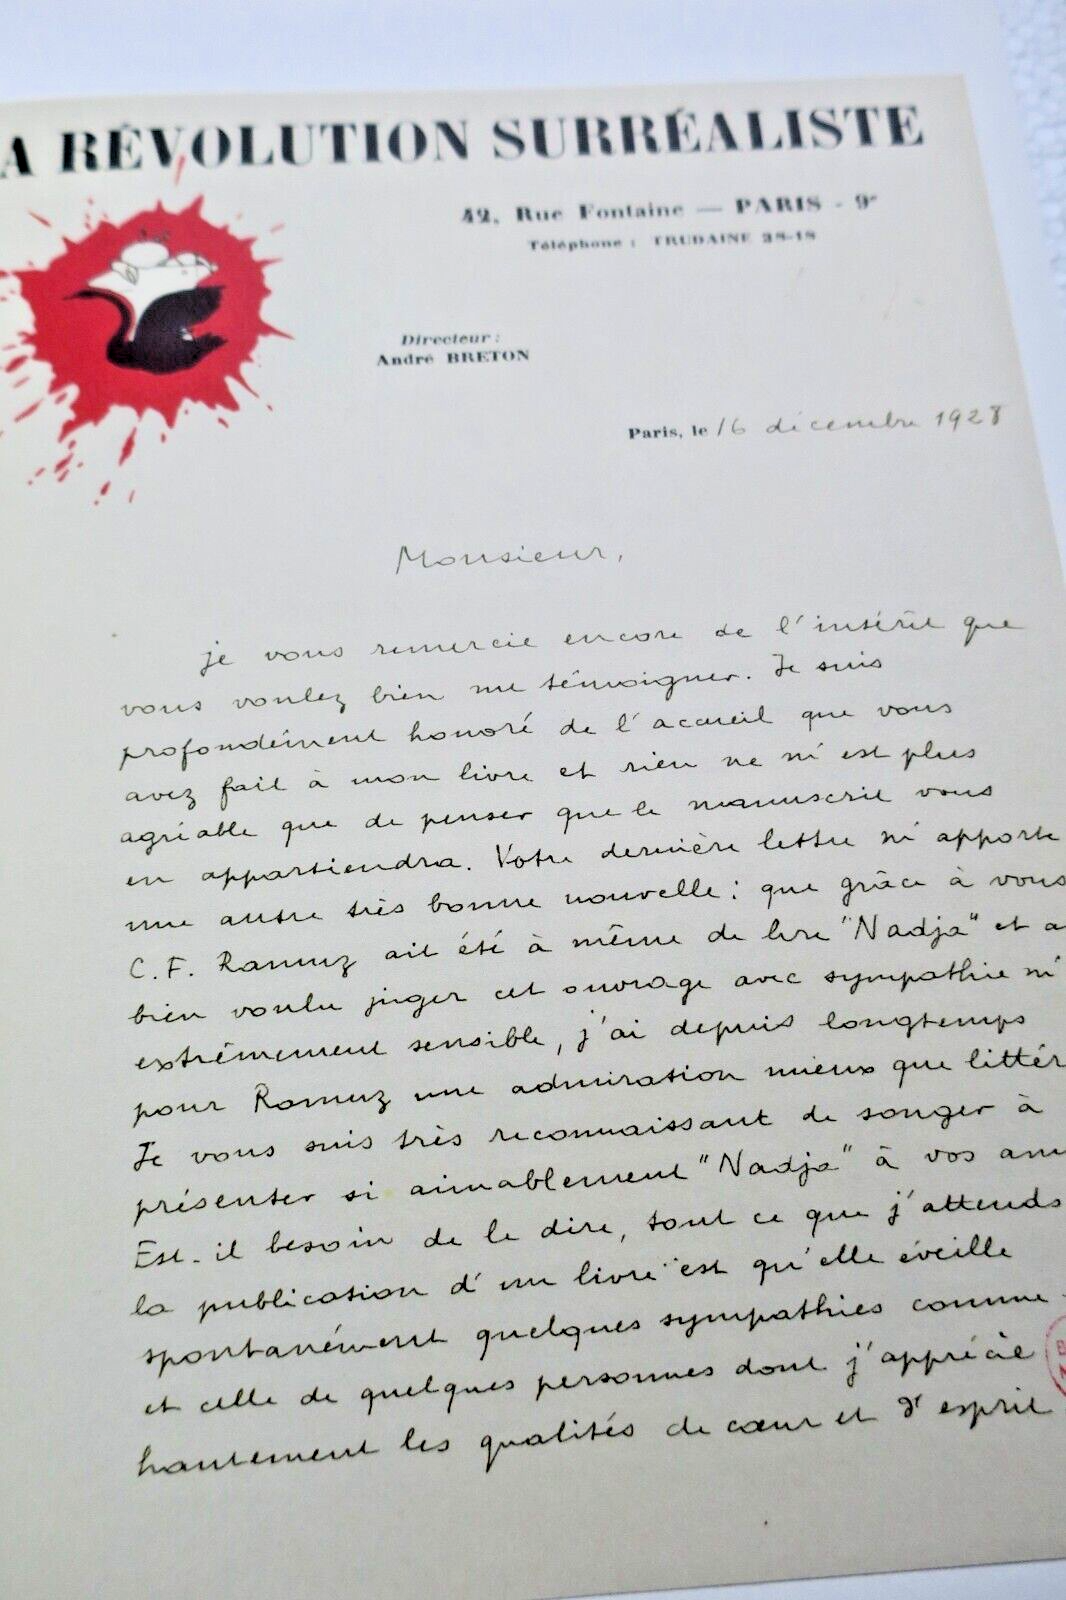 A RÉVOLUTION SURRÉALISTE
42, Rue Fontaine — PARIS - 9e
Téléphone : TRUDAINE 38-18
Directeur :
André BRETON
Paris, le 16 décembre 1928
Monsieur,
je vous remercie encore de l'intérêt que
vous voulez bien me témoigner. Je suis
profondément honoré de l'accueil que vous
avez fait à mon livre et rien ne m'est plus
agréable que de penser que le manuscrit vous
en appartiendra. Votre dernière lettre m'apporte
une autre très bonne nouvelle : que grâce à vous
C. F. Ramuz ait été à même de lire "Nadja" et a
bien voulu juger cet ouvrage avec sympathie m'
extrêmement sensible, j'ai depuis longtemps
pour Ramuz une admiration mieux que littér
Je vous suis très reconnaissant de songer à
présenter si aimablement "Nadja" à vos ami
Est-il besoin de le dire, tout ce que j'attends
la publication d'un livre est qu'elle éveille
spontanément quelques sympathies comme
et celle de quelques personnes dont j'apprécie
hautement les qualités de cœur et d'esprit